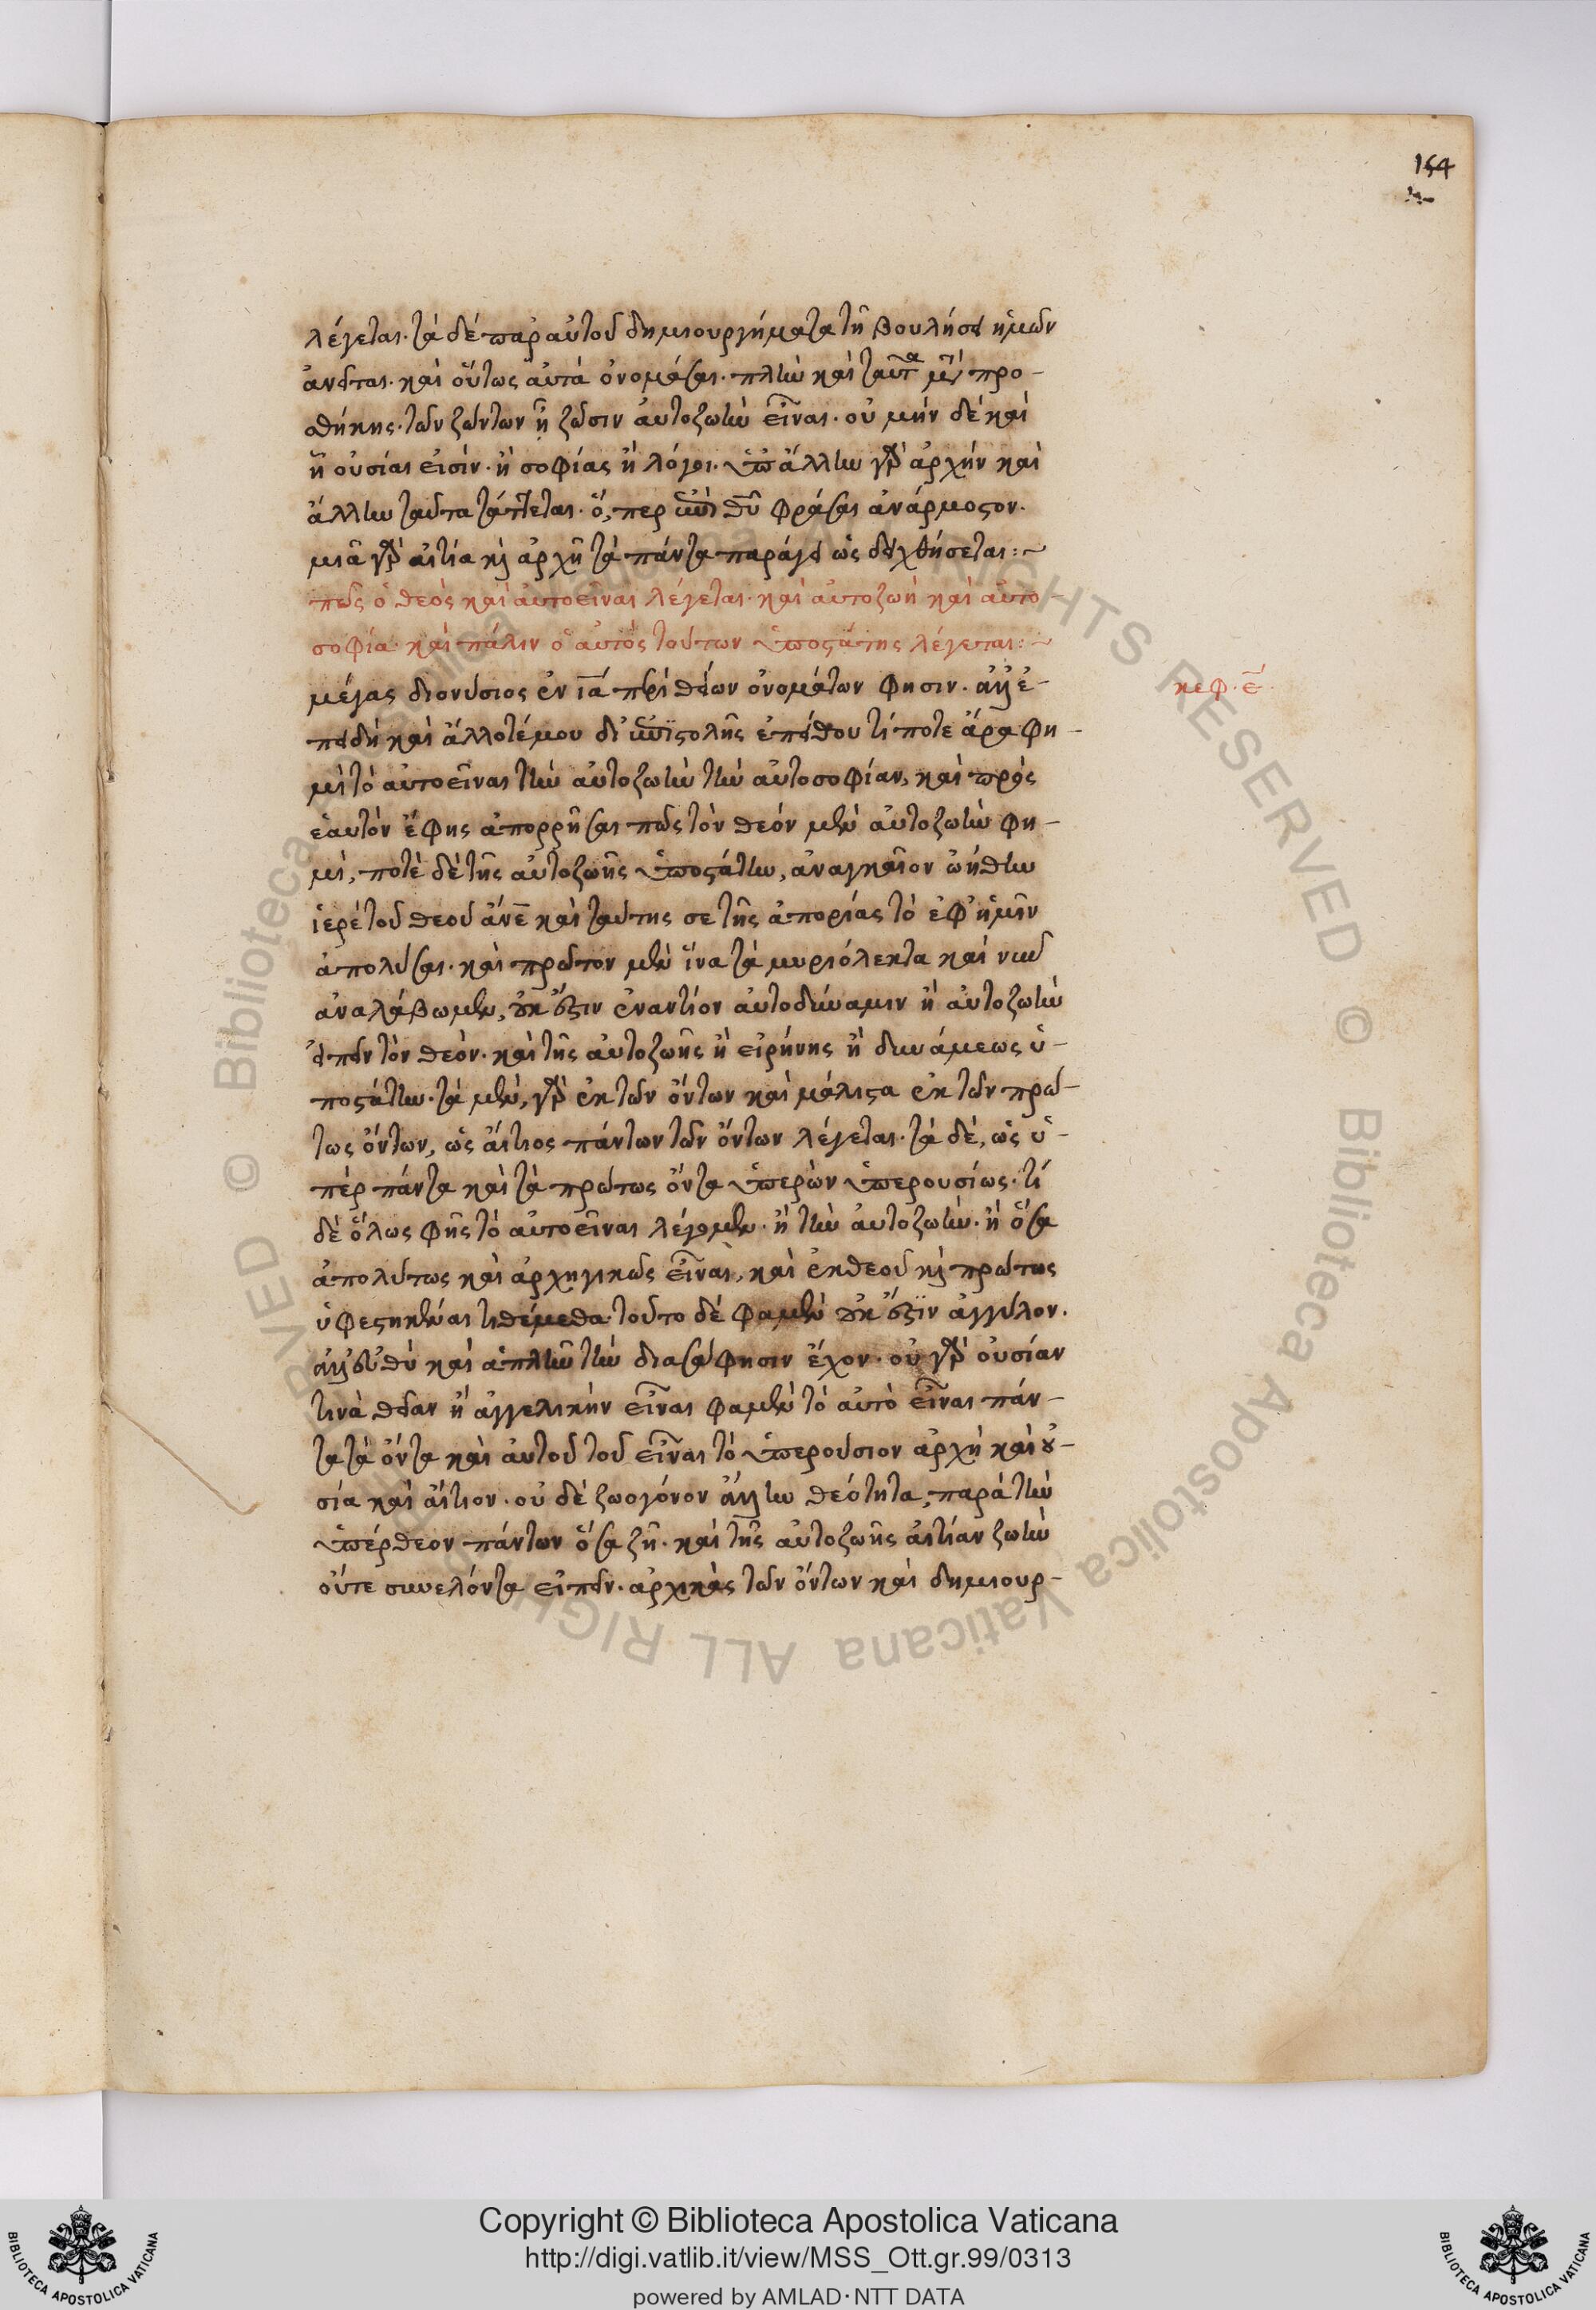 154
λέγεται· τὰ δὲ παρ' αὐτοῦ δημιουργήματα τῆ βουλήσει ἡμῶν
ἀνεῖται· καὶ οὕτως αὐτὰ ὀνομάσαι· πλὴν καὶ ταῦτα μετὰ προ-
θήκης· τῶν ζώντων ἢ ζῶσιν αὐτοζωὴν εἶναι· οὐ μὴν δὲ καὶ
ἢ οὐσίαι εἰσίν· ἢ σοφίας ἢ λόγοι· ὑπ' ἄλλην γὰρ ἀρχὴν καὶ
ἄλλην ταῦτα τάττεται· ὅ,περ ἐπὶ θεοῦ φράσαι ἀνάρμοστον·
μιᾶ γὰρ αἰτία καὶ ἀρχῆ τὰ πάντα παράγει ὡς δειχθήσεται:~
πῶς ὁ θεὸς καὶ αὐτοεῖναι λέγεται· καὶ αὐτοζωὴ καὶ αὐτο-
σοφία· καὶ πάλιν ὁ αὐτὸς τούτων ὑποστάτης λέγεται:~
μέγας διονύσιος ἐν ια περὶ θείων ὀνομάτων φησιν· ἀλλ' ἐ-
κεφ· ε·
πειδὴ καὶ ἄλλοτέ μου δι' ἐπιστολῆς ἐπύθου τί ποτε ἄρα φη-
μὶ τὸ αὐτοεῖναι τὴν αὐτοζωὴν τὴν αὐτοσοφίαν, καὶ πρὸς
ἑαυτὸν ἔφης ἀπορρῆσαι πῶς τὸν θεὸν μὲν αὐτοζωὴν φη-
μὶ, ποτὲ δὲ τῆς αὐτοζωῆς ὑποστάτην, ἀναγκαῖον ὠήθην
ἱερὲ τοῦ θεοῦ ἄνε καὶ ταύτης σε τῆς ἀπορίας τὸ ἐφ' ἡμῖν
ἀπολύσαι· καὶ πρῶτον μὲν ἵνα τὰ μυριόλεκτα καὶ νῦν
ἀναλάβωμεν, οὐκ ἔστιν ἐναντίον αὐτοδύναμιν ἢ αὐτοζωὴν
εἰπεῖν τὸν θεὸν· καὶ τῆς αὐτοζωῆς ἢ εἰρήνης ἢ δυνάμεως ὑ-
ποστάτην· τὰ μὲν, γὰρ ἐκ τῶν ὄντων καὶ μάλιστα ἐκ τῶν πρώ-
τως ὄντων, ὡς αἴτιος πάντων τῶν ὄντων λέγεται· τὰ δὲ, ὡς ὑ-
πὲρ πάντα καὶ τὰ πρώτως ὄντα ὑπερὼν ὑπερουσίως· τί
δὲ ὅλως φῆς τὸ αὐτοεῖναι λέγομεν· ἢ τὴν αὐτοζωὴν· ἢ ὅσα
ἀπολύτως καὶ ἀρχηγικῶς εἶναι, καὶ ἐκ θεοῦ καὶ πρώτως
ὑφεστηκέναι τιθέμεθα· τοῦτο δὲ φαμὲν οὐκ ἔστιν ἀγγύλον·
ἀλλ' εὐθὺ καὶ ἁπλῆν τὴν διασάφησιν ἔχον· οὐ γὰρ οὐσίαν
τινὰ θείαν ἢ ἀγγελικὴν εἶναι φαμὲν τὸ αὐτὸ εἶναι πάν-
τα τὰ ὄντα καὶ αὐτοῦ τοῦ εἶναι τὸ ὑπερούσιον ἀρχὴ καὶ οὐ-
σία καὶ αἴτιον· οὐ δὲ ζωογόνον ἄλλην θεότητα, παρὰ τὴν
ὑπέρθεον πάντων ὅσα ζῆ· καὶ τῆς αὐτοζωῆς αἰτίαν ζωὴν
οὔτε συνελόντα εἰπεῖν· ἀρχικὰς τῶν ὄντων καὶ δημιουρ-
Copyright © Biblioteca Apostolica Vaticana
http://digi.vatlib.it/view/MSS_Ott.gr.99/0313
powered by AMLAD·NTT DATA